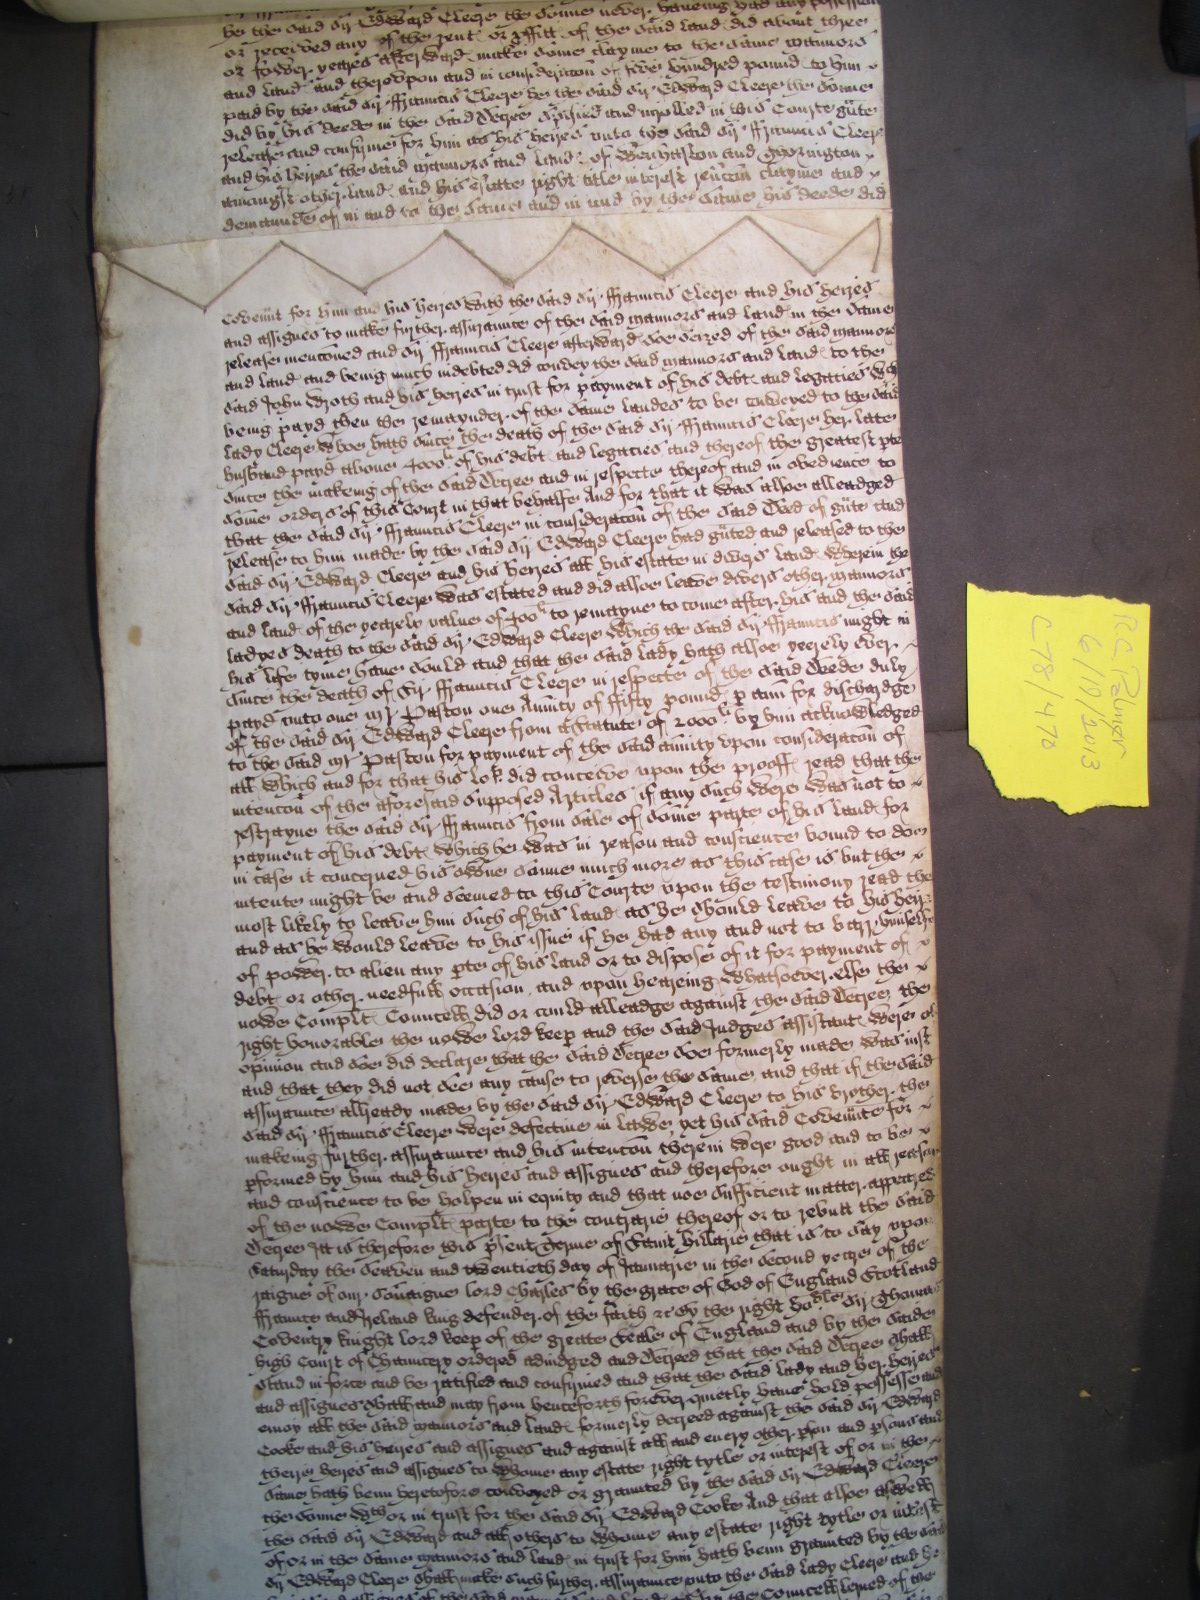 be the said Sir Edward Cleere the sonne never haveing had any possession
or received any of the rent or profitt of the said land did about three
or fower yeares afterward make some clayme to the same mannors
and land and therevpon and in consideracon of five hundred pound to him
paid by the said Sr ffrauncis Cleere he the said Sr Edward Cleere the sonne
did by his deede in the said Decree specified and inrolled in this Courte
release and confirme for him and his heires vnto the said Sr ffrauncis Cleere
and his heires the said mannors and land of and
amongst other land and his estate right title interest clayme and
demaunde of in and to the same and in and by the same his deede did
covennt for him and his heires with the said Sr ffrauncis Cleere and his heires
and assignes to make further assurance of the said mannors and land in the same
release mencioned and Sr ffrauncis Cleere afterward soe seized of the said mannors
and land and being much indebted did convey the said mannors and land to the
said John Wroth and his heires in trust for payment of his debt and legacies wch
being payd then the remaynder of the same landes to be conveyed to the said
lady Cleere whoe hath since the death of the said Sr ffrauncis Cleere her late
husband payd above 4000li of his debt and legacies and thereof the greatest pte
since the makeing of the said Decree and in respecte thereof and in obedience to
some orders of this Court in that behalfe And for that it was alsoe alleadged
that the said Sr ffrauncis Cleere in consideracon of the said Deed of and
release to him made by the said Sr Edward Cleere had and released to the
said Sr Edward Cleere and his heires all his estate in divers land wherein the
said Sr ffrauncis Cleere was estated and did alsoe leave divers other mannors
and land of the yearely value of 400li to remayne to come after his and the said
ladyes death to the said Sr Edward Cleere which the said Sr ffrauncis might in
his life tyme have sould and that the said lady hath alsoe yeerely ever
since the death of Sr ffrauncis Cleere in respecte of the said Deede duly
payd vnto one mr Paston one Anuity of fifty pound p ann for dischardge
of the said Sr Edward Cleere from a Statute of 2000li by him acknowledged
to the said mr Paston for payment of the said anuity vpon consideracon of
all which and for that his lop did conceive vpon the prooff read that the
intencon of the aforesaid supposed Articles if any such were was not to
restrayne the said Sr ffrauncis from sale of some parte of his land for
payment of his debt which he was in reason and conscience bound to doe
in case it concerned his owne sonne much more as this case is but the
intente might be and seemed to this Courte vpon the testimony read the
most likely to leave him such of his land as he should leave to his heir
and as he would leave to his issue if he had any and not to barr himselfe
of power to alien any pte of his land or to dispose of it for payment of
debt or other needfull occasion and vpon heareing whatsoever else the
nowe Complt Councell did or could alleadge against the said Decree the
right honorable the nowe lord keep and the said Judges assistant were of
opinion and soe did declare that the said Decree soe formerly made was iust
and that they did not see any cause to reverse the same and that if the said
assurance allready made by the said Sr Edward Cleere to his brother the
said Sr ffrauncis Cleere were defective in lawe yet his said Covennte for
makeing further assurance and his intencon therein were good and to be
pformed by him and his heires and assignes and therefore ought in all reason
and conscience to be holpen in equity and that noe sufficient matter appeared
of the nowe Complt parte to the contrarie thereof or to rebutt the said
Decree Itt is therefore this psent Terme of Saint Hillarie that is to say vpon
Saturday the seaven and twentieth day of Januarie in the second yeare of the
raigne of our Soueraigne lord Charles by the grace of God of England Scotland
ffraunce and Ireland king defender of the faith &c By the right Hoble Sr Thomas
Coventry knight lord keep of the greate Seale of England and by the saide
high Court of Chauncery ordered adiudged and Decreed that the said Decree shall
stand in force and be ratified and confirmed and that the said lady and her heires
and assignes shall and may from henceforth forever quietly have hold possesse and
enioy all the said mannors and land formerly decreed against the said Sr Edward
Cooke and his heires and assignes and against all and every other pson and psons and
theire heires and assignes to whome any estate right tytle or interest of or in the
same hath benn heretofore conveyed or graunted by the said Sr Edward Cleere
the sonne wth or in trust for the said Sr Edward Cooke And that alsoe aswell
the said Sr Edward and all others to whome any estate right tytle or interest
of or in the same mannors and land in trust for him hath benn graunted by the said
Sr Edward Cleere shall make such further assurance vnto the said Lady Cleere and he
RC Palmer
6/10/2013
C78/470